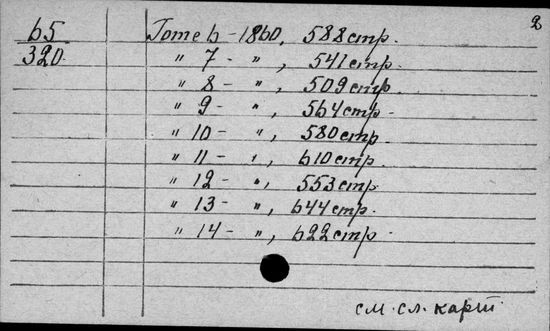 2
65 Tome 6 - 1860, 588 стр.
320. " 7 - ", 541 стр.
" 8 - ", 509 стр.
" 9 - ", 564 стр.
" 10 - ", 580 стр.
" 11 - ", 610 стр.
" 12 - ", 553 стр.
" 13 - ", 644 стр.
" 14 - ", 622 стр.
см. сл. карт.